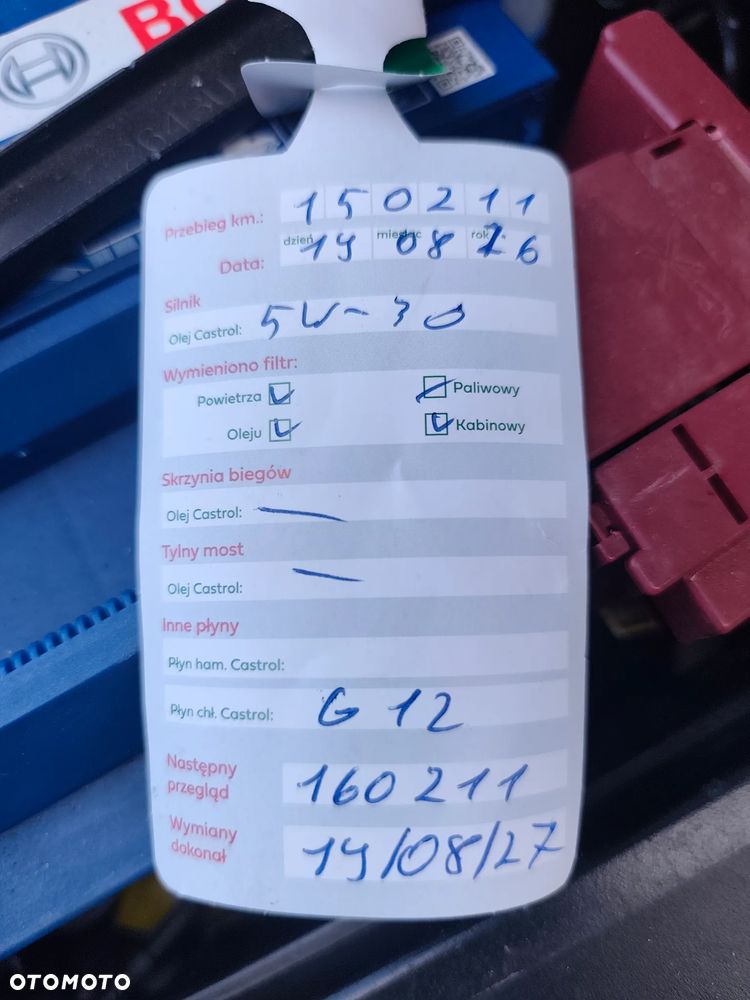 BO
Przebieg km.: 150211
dzień miesiąc rok
Data: 19 08 26
Silnik
Olej Castrol: 5W-30
Wymieniono filtr:
Powietrza Paliwowy
Oleju Kabinowy
Skrzynia biegów
Olej Castrol: —
Tylny most
Olej Castrol: —
Inne płyny
Płyn ham. Castrol:
Płyn chł. Castrol: G 12
Następny przegląd 160211
Wymiany dokonał 19/08/27
OTOMOTO